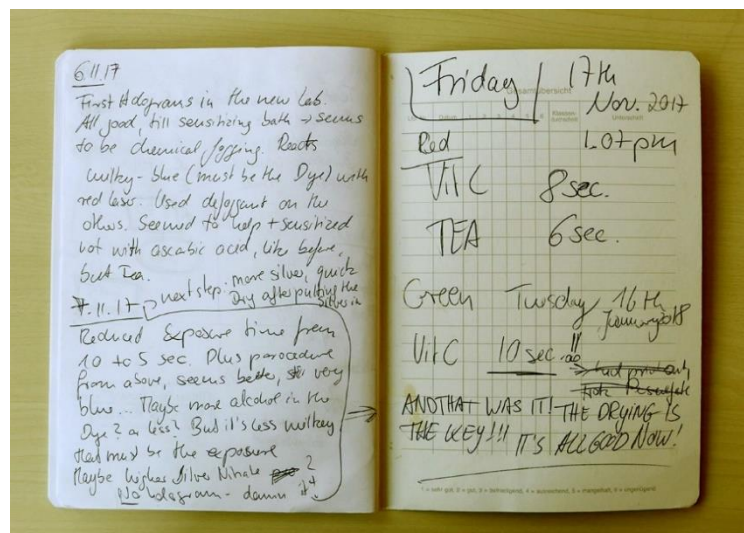 6.11.17
First Holograms in the new Lab.
All good, till sensitizing bath → seems
to be chemical fogging. Reacts
milky-blue (must be the Dye) with
red laser. Used defoggant on the
others. Seemed to help + sensitized
not with ascabic acid, like before,
but Tea.
7.11.17 → next step. more silver, quick
Dry after pulling the
silver in
Reduced Exposure time from
10 to 5 sec. Plus parocedure
from above, seems better, still very
blue... Maybe more alcohol in the
Dye? or less? But it's less milkey
that must be the exposure
Maybe higher Silver Nitrate ?
No hologram - damn it
Friday 17th
Gesamtübersicht
Nov. 2017
Datum 1 2 3 4 5 6 Unterschrift
Red 1.07pm
Vit C 8 sec.
TEA 6 sec.
Green Tuesday 16th
January 2018
Vit C 10 sec.!!
AND THAT WAS IT! THE DRYING IS
THE KEY!!! IT'S ALL GOOD NOW!
1 = sehr gut, 2 = gut, 3 = befriedigend, 4 = ausreichend, 5 = mangelhaft, 6 = ungenügend